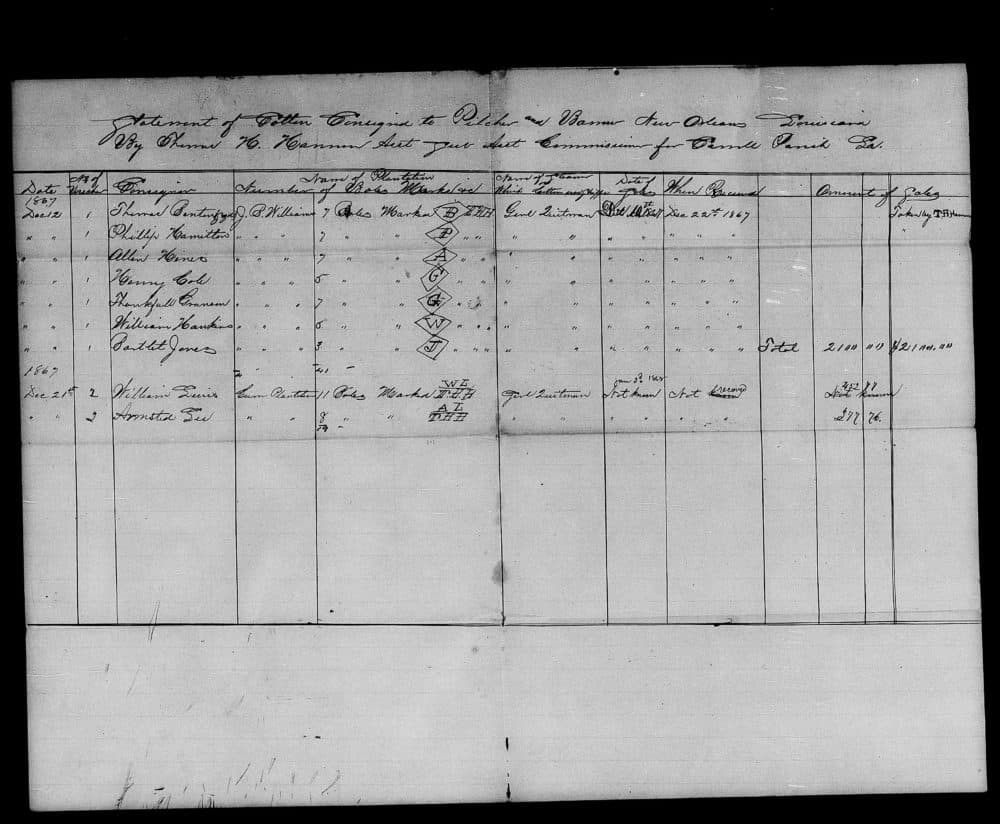 Statement of Cotton Consignd to Pilcher and Barrow New Orleans Louisiana
By Thomas H. Hannon Asst Sub Asst Commissioner for Carroll Parish La.
Date No of Consignor Name of Plantation Number of Bales Marks &c Name of Steam Which Cotton was Date of When Received Amount of Sales
1867
Dec 12 1 Thomas J. P. Williams 7 Bales Marked B THH Genl Quitman Dec 22nd 1867 Taken by T.H. Hannon
" " 1 Phillip Hamilton " " " 7 " " P " " " " " " " "
" " 1 Allen Hines " " " 7 " " A " " " " " " " "
" " 1 Henry Cole " " " 5 " " G " " " " " " "
" " 1 Thankfull " " " 7 " " G " " " " " " "
" " 1 William Hawkins " " " 5 " " W " " " " " " " "
" " 1 Bartlet Jones " " " 3 " " J " " " " " " " " Total 21
1867 41
Dec 21st 2 William Lewis Plantation 11 Bales Marked WL THH Genl Quitman Jan 3d 1868 Not known Not known Not known
" " 2 Armsted Lee " " 8 " " AL THH " " " " " 277 76
19